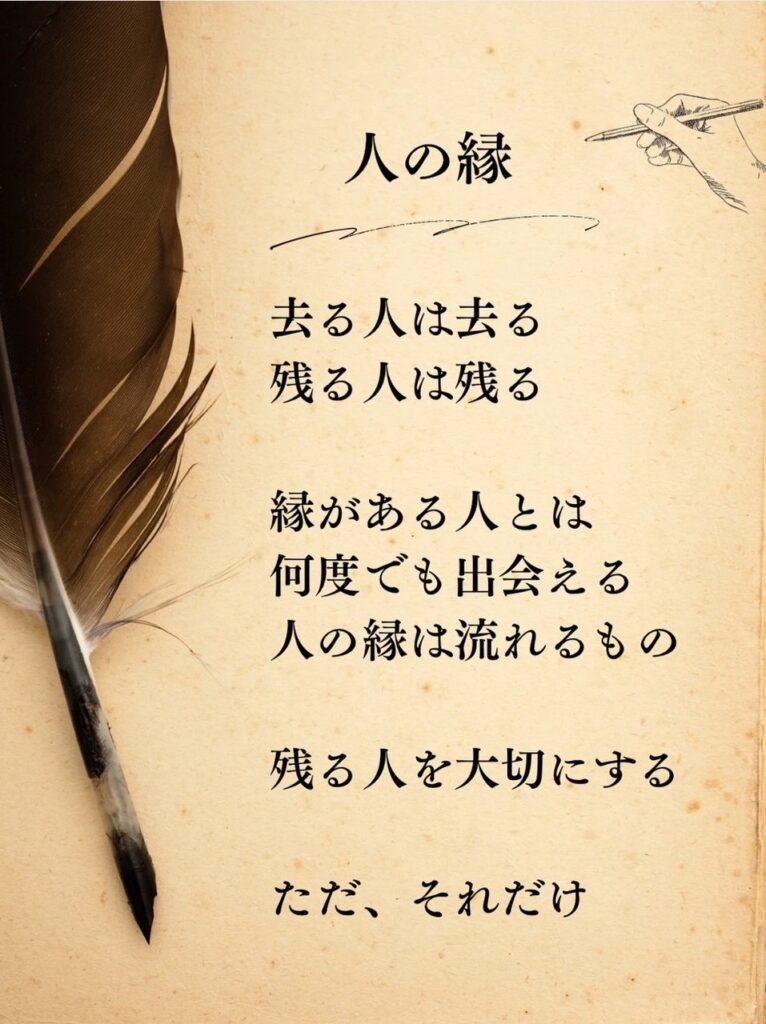 人の縁
去る人は去る
残る人は残る
縁がある人とは
何度でも出会える
人の縁は流れるもの
残る人を大切にする
ただ、それだけ